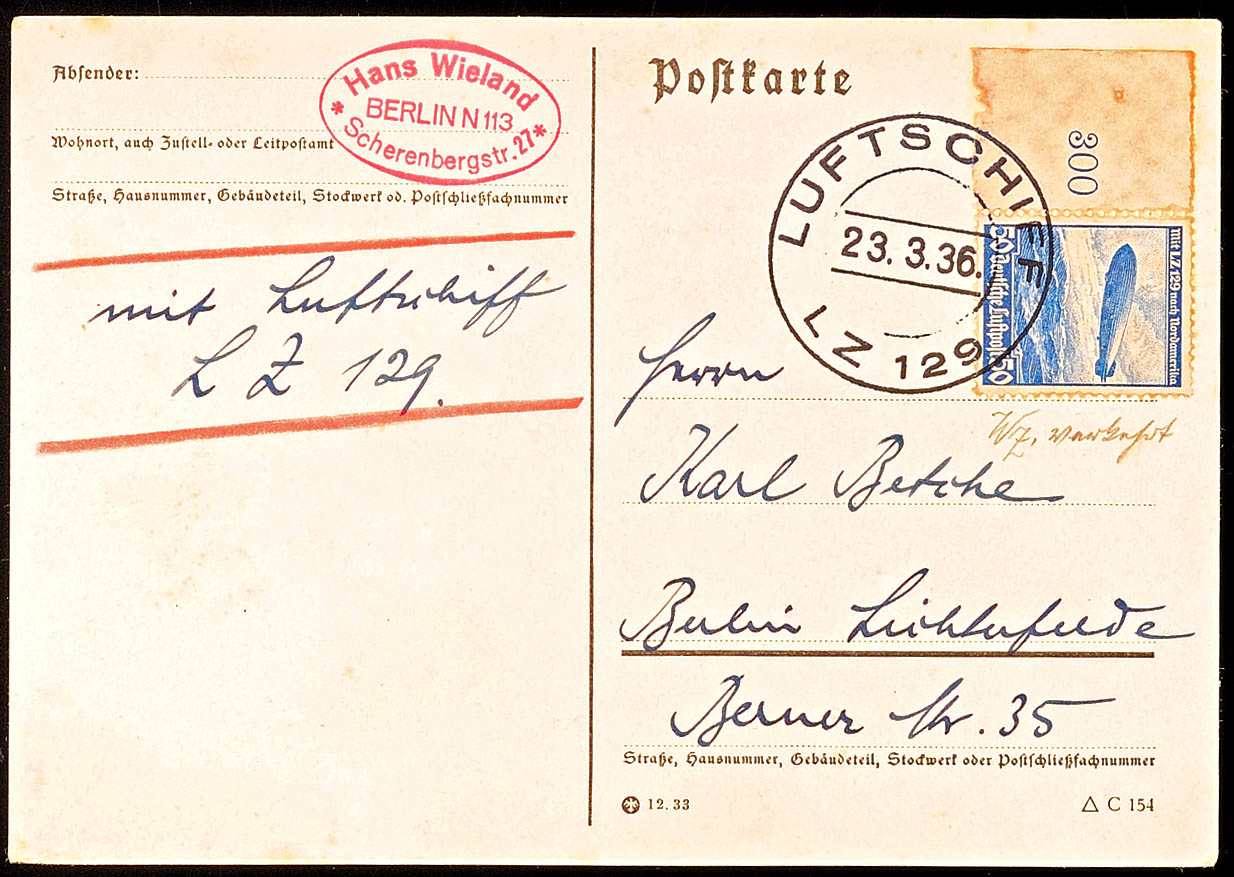 Absender:
Hans Wieland
* BERLIN N 113 *
Scherenbergstr. 27
Wohnort, auch Zustell- oder Leitpostamt
Straße, Hausnummer, Gebäudeteil, Stockwerk od. Postschließfachnummer
mit Luftschiff
L Z 129.
Postkarte
300
LUFTSCHIFF
23. 3. 36.
LZ 129
mit LZ 129 nach Nordamerika
50 Deutsche Luftpost 50
Herrn
Wz. verkehrt
Karl Betche
Berlin Lichterfelde
Berner Str. 35
Straße, Hausnummer, Gebäudeteil, Stockwerk oder Postschließfachnummer
12. 33
△ C 154